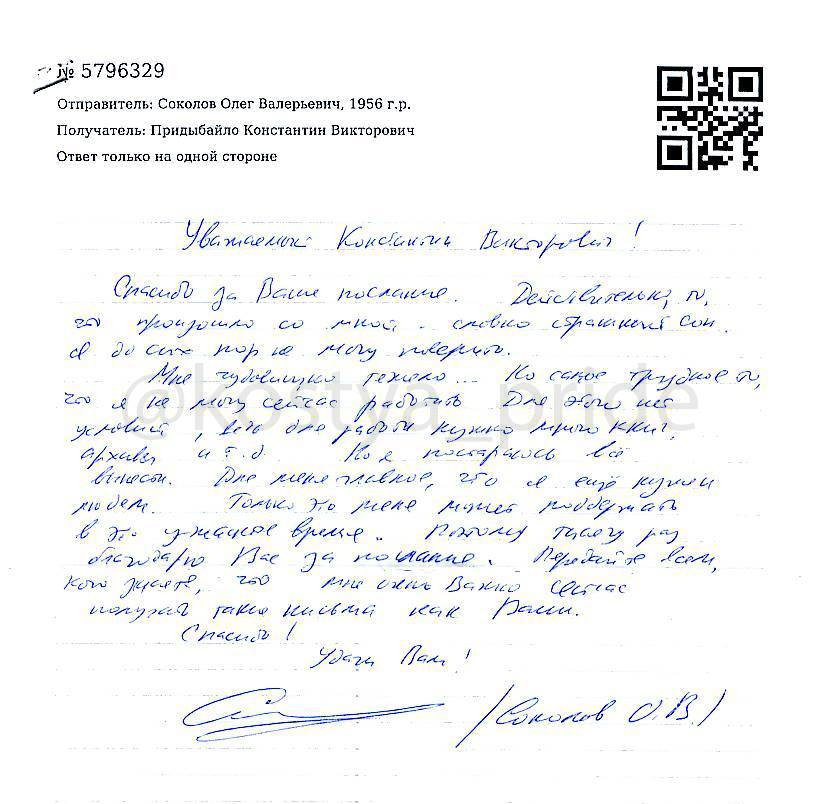 № 5796329
Отправитель: Соколов Олег Валерьевич, 1956 г.р.
Получатель: Придыбайло Константин Викторович
Ответ только на одной стороне
Уважаемый Константин Викторович!
Спасибо за Ваше послание. Действительно, то,
что произошло со мной - словно страшный сон.
Я до сих пор не могу поверить.
Мне чудовищно тяжело... Но самое трудное то,
что я не могу сейчас работать. Для этого нет
условий, ведь для работы нужно много книг,
архивы и т.д. Но я постараюсь всё
вынести. Для меня главное, что я ещё нужен
людям. Только это меня может поддержать
в это ужасное время. Поэтому тысячу раз
благодарю Вас за послание. Передайте всем,
кого знаете, что мне очень важно сейчас
получать такие письма как Ваши.
Спасибо!
Удачи Вам!
/Соколов О.В./
@kostya_pride